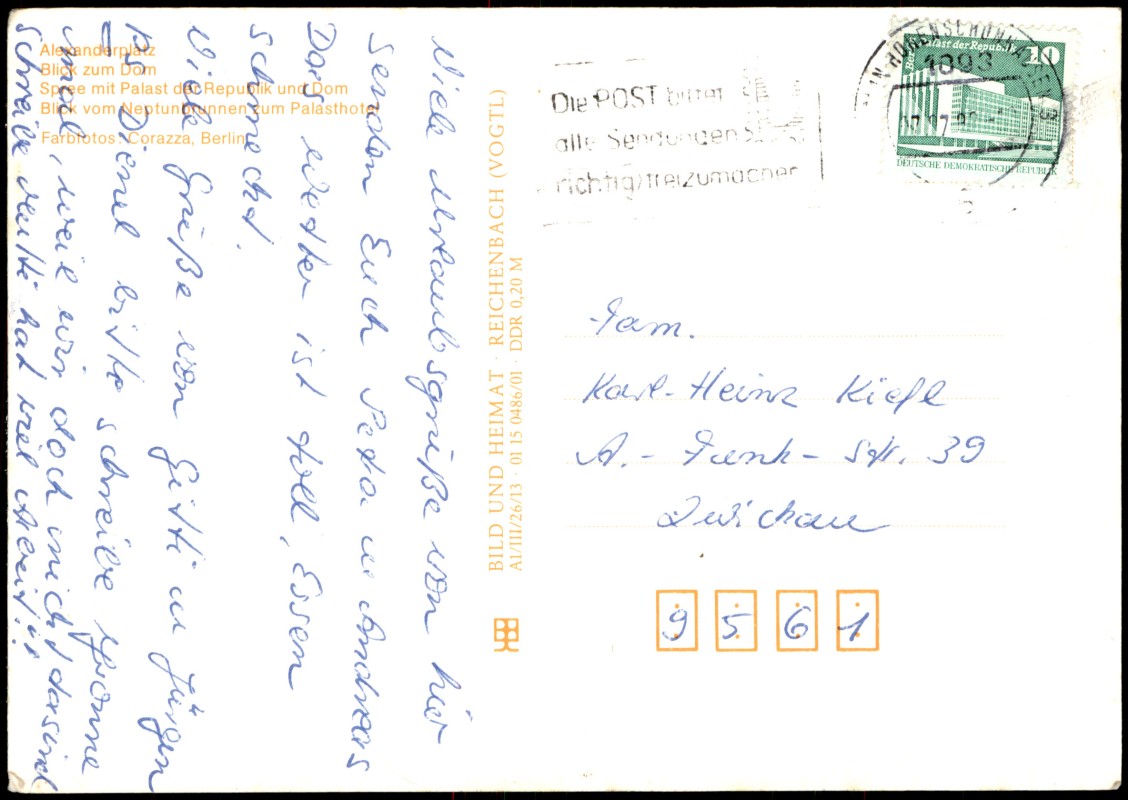 Alexanderplatz
Blick zum Dom
Spree mit Palast der Republik und Dom
Blick vom Neptunbrunnen zum Palasthotel
Farbfotos: Corazza, Berlin
Viele Urlaubsgrüße von hier
senden Euch Peta u Andreas
Das Wetter ist toll, Essen
schmeckt.
Viele Grüße von Gitti u Jürgen
PS Dienel bitte schreibe Yvonne
mal, weil wir doch nicht da sind
schreibe Leute hat viel Arbeit!!
BILD UND HEIMAT · REICHENBACH (VOGTL)
A1/III/26/13 · 01 15 0486/01 · DDR 0,20 M
Die POST bittet
alle Sendungen
richtig freizumachen
HOHENSCHÖNHAUSEN
1093
Palast der Republik
10
DEUTSCHE DEMOKRATISCHE REPUBLIK
Fam.
Karl-Heinz Kiefl
A.-Funk-Str. 39
Zwickau
9561